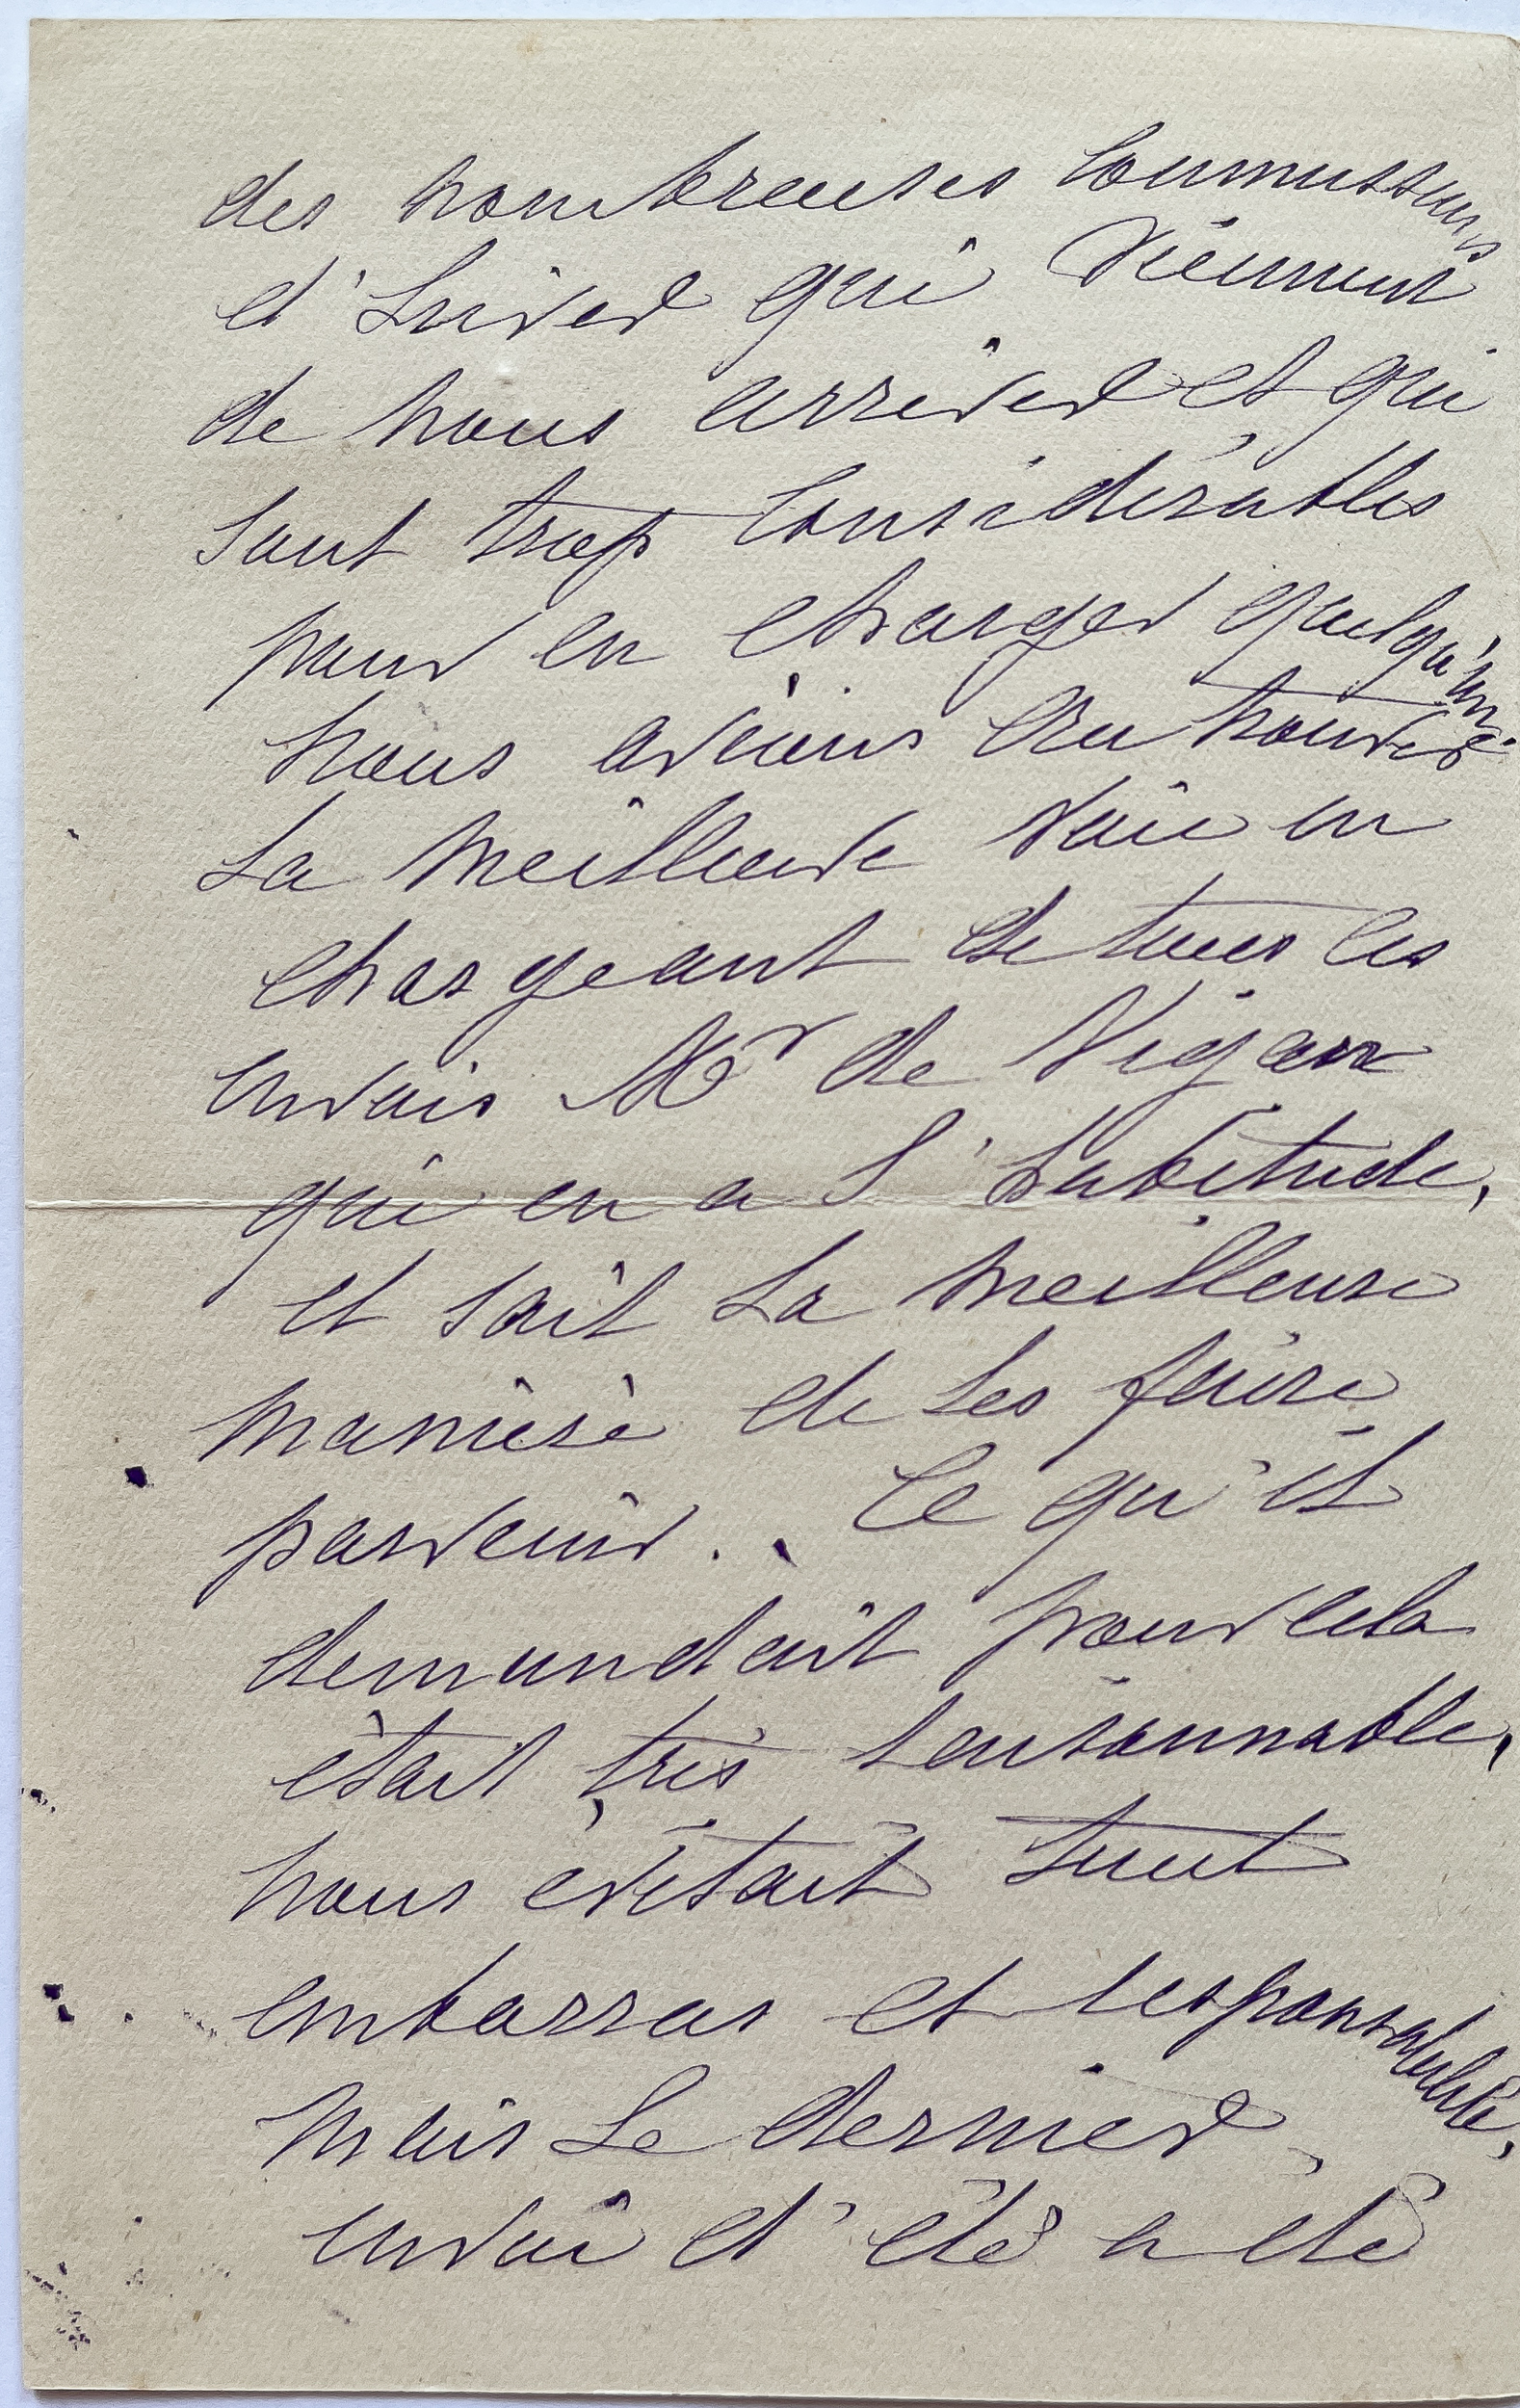 des nombreuses commissions
d'hiver qui viennent
de nous arriver et qui
sont trop considérables
pour en charger quelqu'un.
nous avions cru trouver
la meilleure voie en
chargeant de tous les
envois Mr de Vigan
qui en a l'habitude,
et sait la meilleure
manière de les faire
parvenir. Ce qu'il
demandait pour cela
était très raisonnable,
nous évitait tout
embarras et responsabilité,
mais le dernier
envoi d'été a été